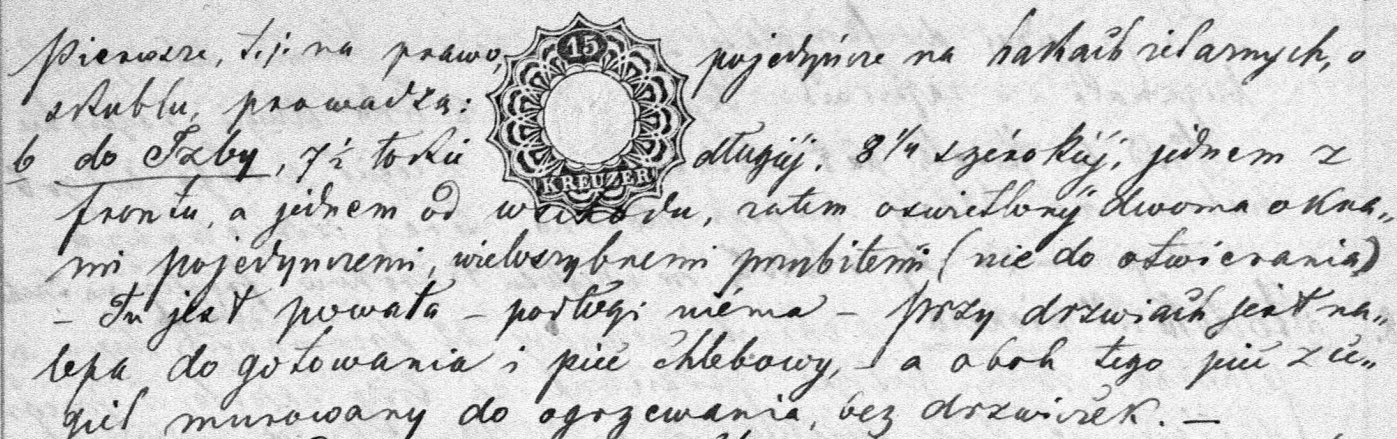 pierwsze, t.j. na prawo, pojedyńcze na hakach żelaznych, o
skublu, prowadzą:
15
KREUZER
b do Izby, 7½ łokci długiéj, 8¼ szérokiéj, jednem z
frontu, a jednem od wschodu, zatem oświetlonéj dwoma okna„
mi pojedynczemi, wieloszybnemi przybitemi (nie do otwierania)
– Tu jest powała – podłogi niéma – przy drzwiach jest na„
lepa do gotowania i piec chlebowy, – a obok tego piec z ce„
gieł murowany do ogrzewania, bez drzwiczek. –